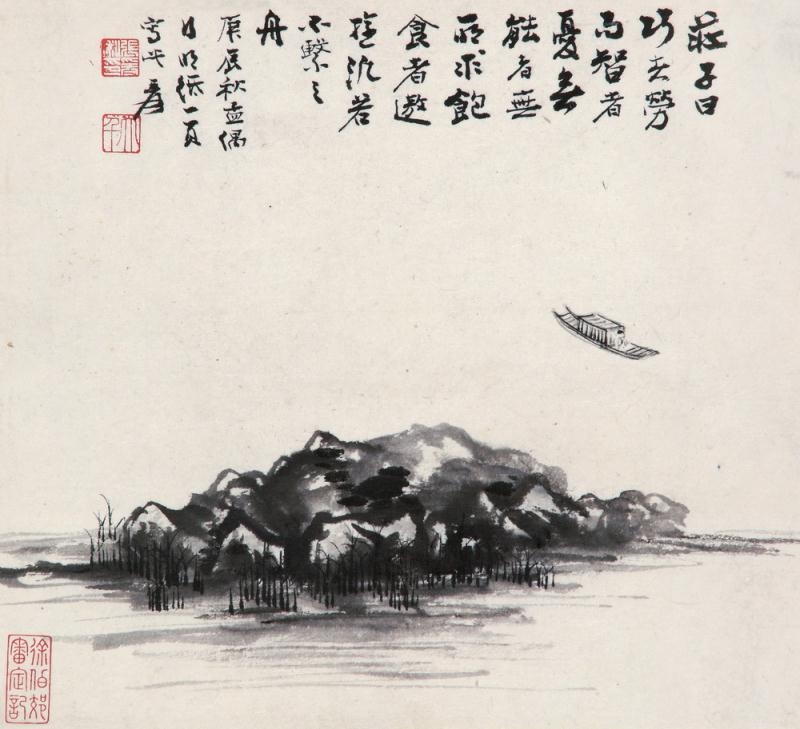 莊子曰
巧者勞
而智者
憂無
能者無
所求飽
食者遨
遊汎若
不繫之
舟
庚辰秋孟偶
得明紙一頁
寫此 爰
大千
徐伯郊
審定記